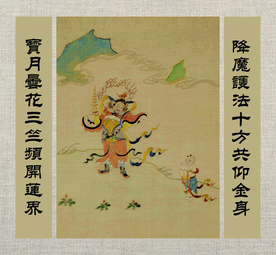 降魔護法十方共仰金身
寶月曇花三竺頻開蓮界